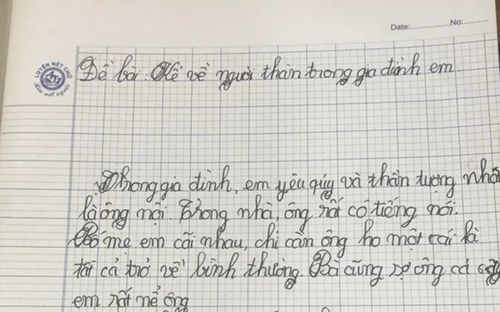 Date: No:
LUYỆN NÉT CHỮ
Đề bài: Kể về người thân trong gia đình em
Trong gia đình, em yêu quý và thần tượng nhất
là ông nội. Trong nhà, ông rất có tiếng nói.
Bố mẹ em cãi nhau, chỉ cần ông ho một cái là
tất cả trở về bình thường. Bà cũng sợ ông cả
em rất nể ông